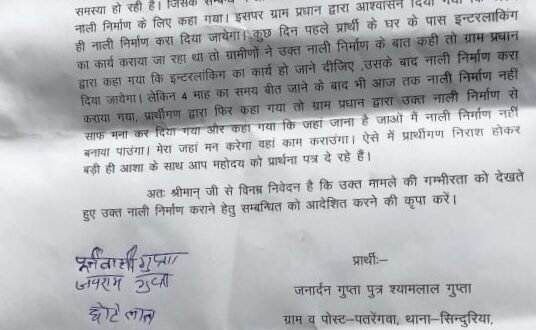 समस्या हो रही है। जिसके सम्बन्ध
नाली निर्माण के लिए कहा गया। इसपर ग्राम प्रधान द्वारा आश्वासन दिया गया
ही नाली निर्माण करा दिया जायेगा। कुछ दिन पहले प्रार्थी के घर के पास इन्टरलाकिंग
का कार्य कराया जा रहा था तो ग्रामीणों ने उक्त नाली निर्माण के बात कही तो ग्राम प्रधान
द्वारा कहा गया कि इन्टरलाकिंग का कार्य हो जाने दीजिए .उसके बाद नाली निर्माण करा
दिया जायेगा। लेकिन 4 माह का समय बीत जाने के बाद भी आज तक नाली निर्माण नहीं
कराया गया, प्रार्थीगण द्वारा फिर कहा गया तो ग्राम प्रधान द्वारा उक्त नाली निर्माण से
साफ मना कर दिया गया और कहा गया कि जहां जाना है जाओं मैं नाली निर्माण नहीं
बनावा पाउंगा। मेरा जहां मन करेगा वहां काम कराउंगा। ऐसे में प्रार्थीगण निराश होकर
बड़ी ही आशा के साथ आप महोदय को प्रार्थना पत्र दे रहे हैं।
अतः श्रीमान् जी से विनम्र निवेदन है कि उक्त मामले की गम्भीरता को देखते
हुए उक्त नाली निर्माण कराने हेतु सम्बन्धित को आदेशित करने की कृपा करें।
पूर्नवासी गुप्ता
जयराम गुप्ता
छोटे लाल
प्रार्थी:–
जनार्दन गुप्ता पुत्र श्यामलाल गुप्ता
ग्राम व पोस्ट–पतरेंगवा, थाना–सिन्दुरिया,